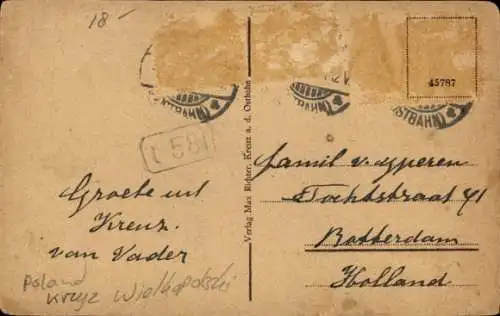 18-
45787
(OSTBAHN)
1 581
Groete uit
Kreuz.
van Vader
Poland
Kreyz Wielkopolski
Verlag Max Richter, Kreuz a. d. Ostbahn
famil v. yperen
Tochtstraat 41
Rotterdam
Holland